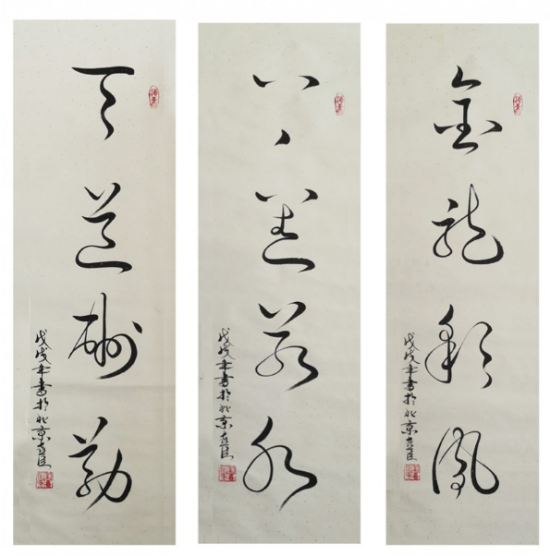 金龍彩鳳
戊戌年書於北京
上善若水
戊戌年書於北京
天道酬勤
戊戌年書於北京